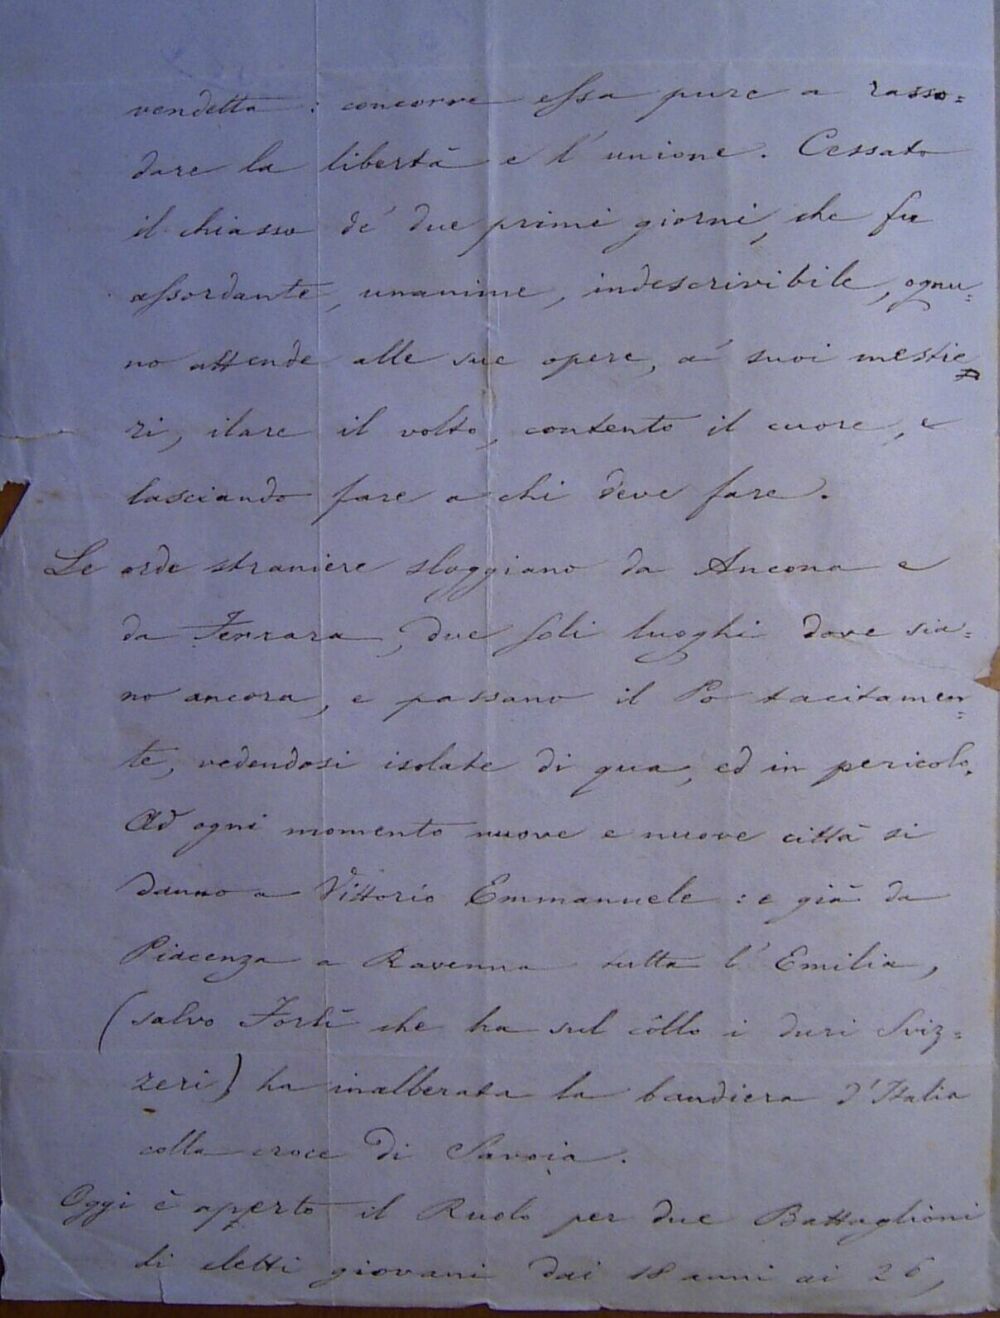 vendetta: concorre essa pure a rasso=
dare la libertà e l'unione. Cessato
il chiasso de' due primi giorni, che fu
assordante, unanime, indescrivibile, ognu=
no attende alle sue opere, a' suoi mestie=
ri, ilare il volto, contento il cuore, e
lasciando fare a chi deve fare.
Le orde straniere sloggiano da Ancona e
da Ferrara, due soli luoghi dove sia=
no ancora, e passano il Po tacitamen=
te, vedendosi isolate di qua, ed in pericolo.
Ad ogni momento nuove e nuove città si
danno a Vittorio Emmanuele: e già da
Piacenza a Ravenna tutta l'Emilia,
(salvo Forlì che ha sul côllo i duri Sviz=
zeri) ha inalberata la bandiera d'Italia
colla croce di Savoja.
Oggi è aperto il Ruolo per due Battaglioni
di eletti giovani dai 18 anni ai 26,